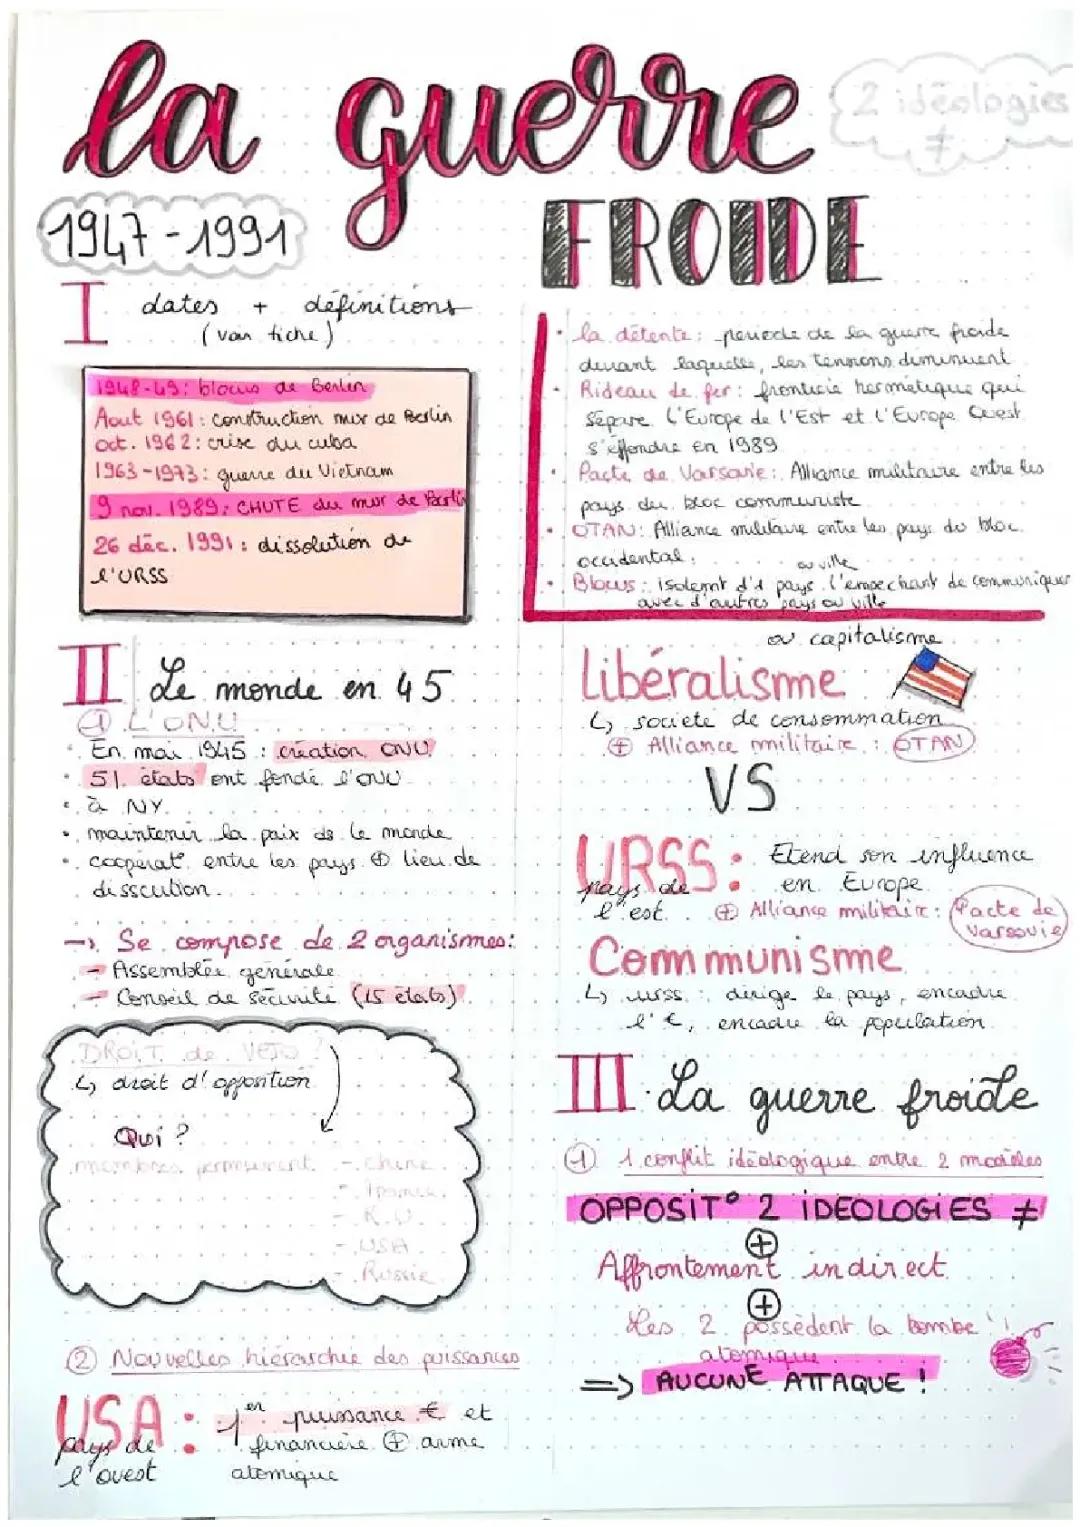 la guerre
FROIDE
2 idéologies
≠
1947-1991
I dates + définitions
(voir fiche)
1948-49: blocus de Berlin
Aout 1961: construction mur de Berlin
oct. 1962: crise du cuba
1963-1973: guerre du Vietnam
9 nov. 1989: CHUTE du mur de Berlin
26 déc. 1991: dissolution de
l'URSS
• la détente: periode de la guerre froide
durant laquelle, les tensions diminuent
• Rideau de fer: frontiere hermetique qui
sépare l'Europe de l'Est et l'Europe Ouest
s'éffondre en 1989
• Pacte de Varsovie: Alliance militaire entre les
pays du bloc communiste
• OTAN: Alliance militaire entre les pays du bloc
occidental.
ou ville
• Blocus: isolemt d'1 pays l'empechant de communiquer
avec d'autres pays ou ville
II Le monde en 45
① L'ONU
• En mai 1945: création ONU
• 51 états ont fondé l'ONU
• à NY
• maintenir la paix ds le monde
• cooperat° entre les pays ⊕ lieu de
disscution.
→ Se compose de 2 organismes:
- Assemblée générale
- Conseil de sécurité (15 états)
DROIT de VETO?
↳ droit d'opposition
Qui?
membres permanent - chine
- France
- R.U
- USA
- Russie
② Nouvelles hiérarchie des puissances
USA: 1er puissance € et
pays de financière ⊕ arme
l'ouest atomique
ou capitalisme
Libéralisme
↳ societe de consommation
⊕ Alliance militaire: OTAN
VS
URSS: Etend son influence
pays de en Europe
l'est ⊕ Alliance militaire: Pacte de
Varsovie
Communisme
↳ urss: dirige le pays, encadre
l'€, encadre la population
III La guerre froide
① 1 conflit idéologique entre 2 modèles
OPPOSIT° 2 IDEOLOGIES ≠
⊕
Affrontement indirect
⊕
Les 2 possèdent la bombe
atomique
=> AUCUNE ATTAQUE!